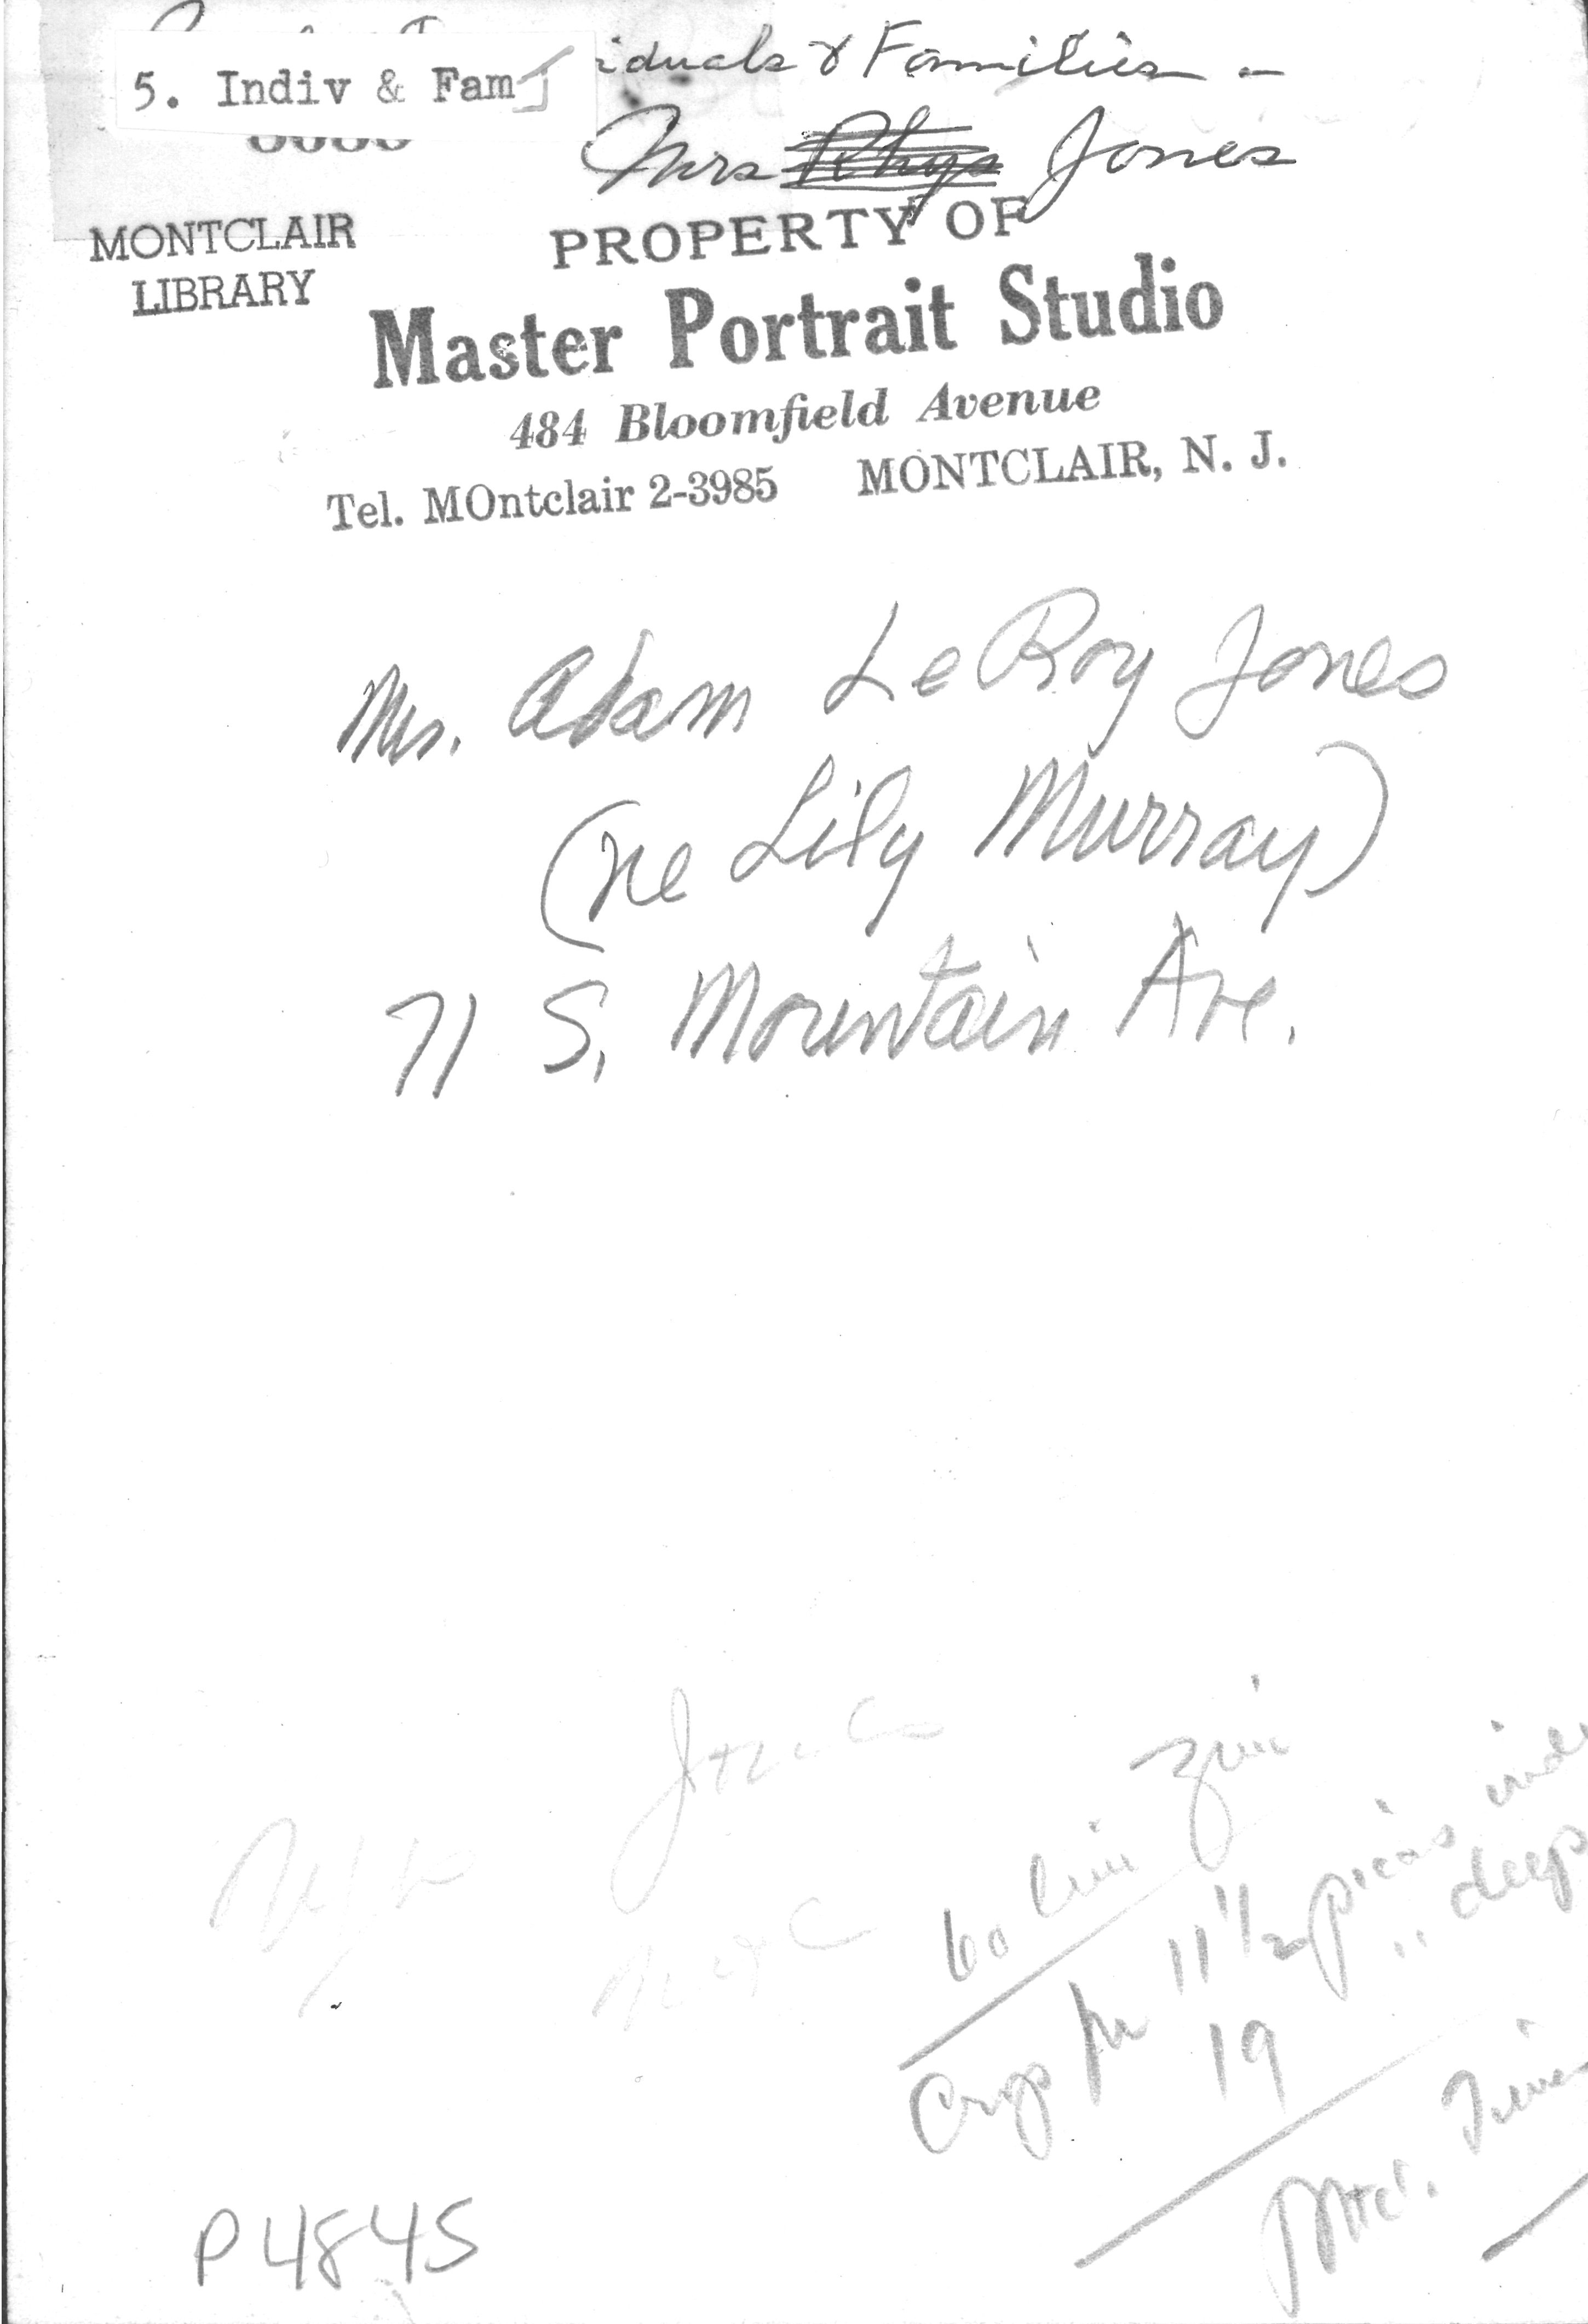 iduals & Families -
5. Indiv & Fam
Mrs Rhys Jones
MONTCLAIR
LIBRARY
PROPERTY OF
Master Portrait Studio
484 Bloomfield Avenue
Tel. MOntclair 2-3985 MONTCLAIR, N. J.
Mrs. Adam LeRoy Jones
(ne Lily Murray)
71 S. Mountain Ave.
60 line
Crop for 11 1/2 picas
19 " deep
Mtc.
P4845